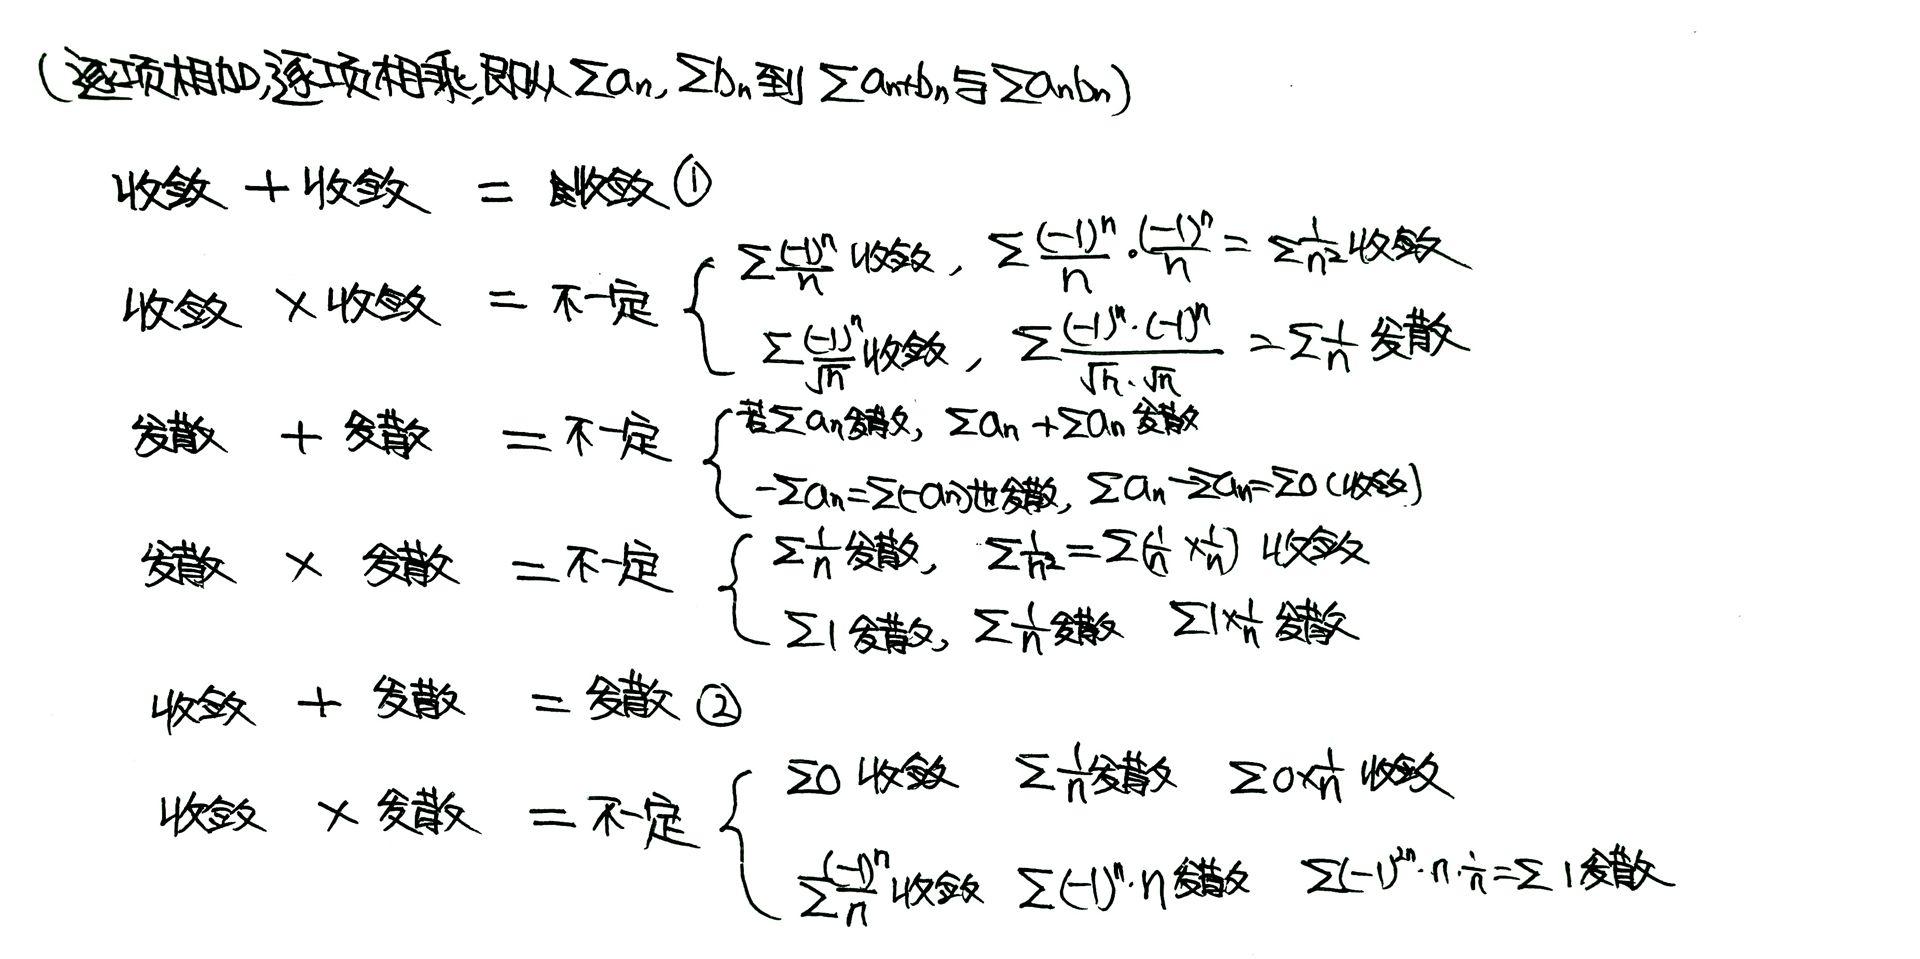 (逐项相加,逐项相乘,即从 Σaₙ, Σbₙ 到 Σaₙ+bₙ 与 Σaₙbₙ)
收敛 + 收敛 = 收敛 ①
收敛 × 收敛 = 不一定 { Σ(-1)ⁿ/n 收敛, Σ (-1)ⁿ/n · (-1)ⁿ/n = Σ1/n² 收敛
Σ(-1)ⁿ/√n 收敛, Σ (-1)ⁿ·(-1)ⁿ/√n·√n = Σ1/n 发散
发散 + 发散 = 不一定 { 若Σaₙ发散, Σaₙ+Σaₙ 发散
-Σaₙ=Σ(-aₙ)也发散, Σaₙ-Σaₙ=Σ0(收敛)
发散 × 发散 = 不一定 { Σ1/n 发散, Σ1/n²=Σ(1/n×1/n) 收敛
Σ1 发散, Σ1/n 发散 Σ1×1/n 发散
收敛 + 发散 = 发散 ②
收敛 × 发散 = 不一定 { Σ0 收敛 Σ1/n 发散 Σ0×1/n 收敛
Σ(-1)ⁿ/n 收敛 Σ(-1)ⁿ·n 发散 Σ(-1)²ⁿ·n·1/n=Σ1 发散